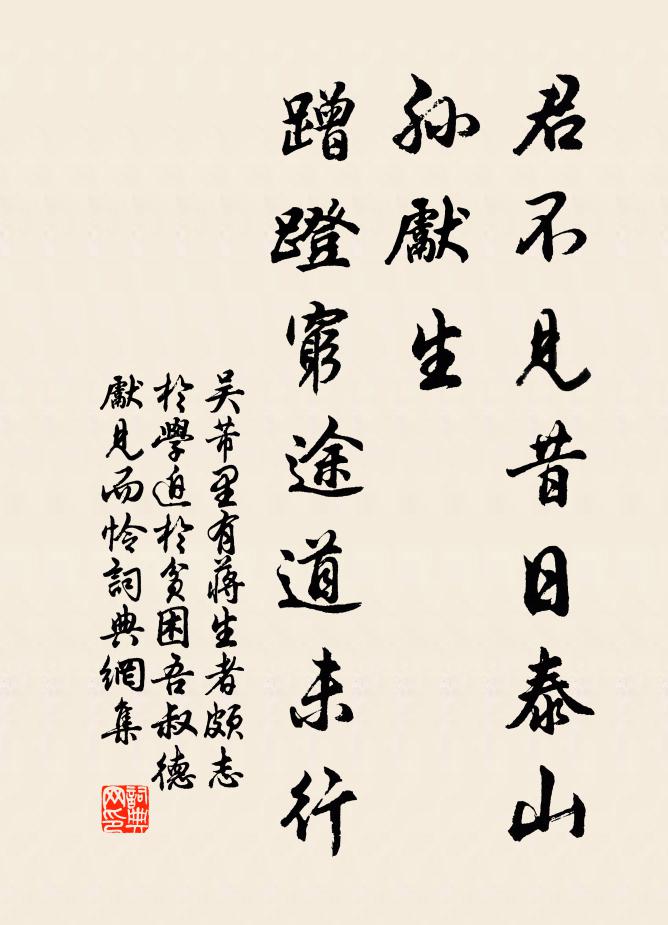 君不見昔日泰山
孫獻生
蹭蹬窮途道未行
吴芾里有蔣生者頗志
於學迫於貧困吾叔德
獻見而怜詞典網集
詞典
网印